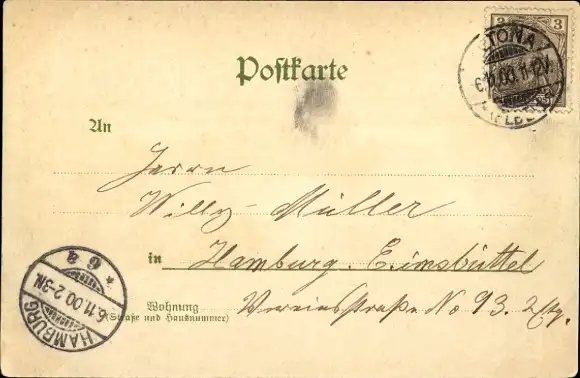 3 3
ALTONA
6.11.00.11-12V.
Postkarte
An
Herrn
Willy Müller
in Hamburg. Eimsbüttel
Wohnung
(Straße und Hausnummer)
Vereinsstraße No 93. 2 Etg.
* 6 a
6.11.00.2-3N.
HAMBURG